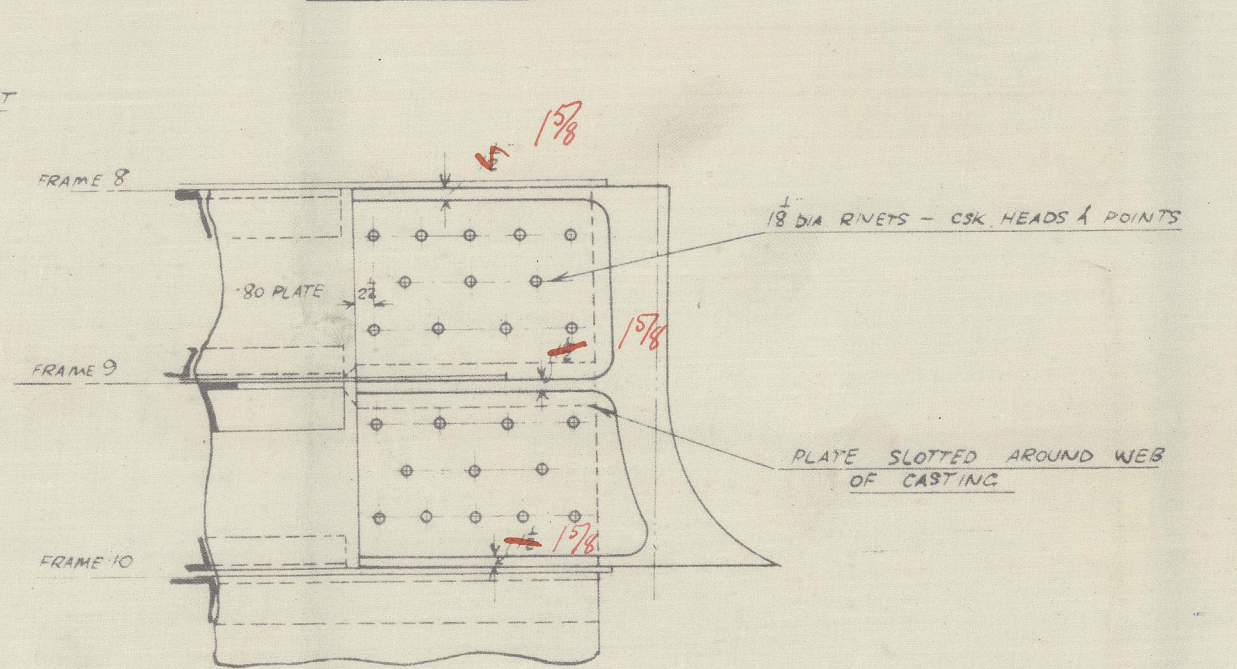 T
1 5/8
FRAME 8
1 1/8 DIA RIVETS - CSK. HEADS & POINTS
·80 PLATE
2 1/2
1 5/8
FRAME 9
PLATE SLOTTED AROUND WEB
OF CASTING
1 5/8
FRAME 10